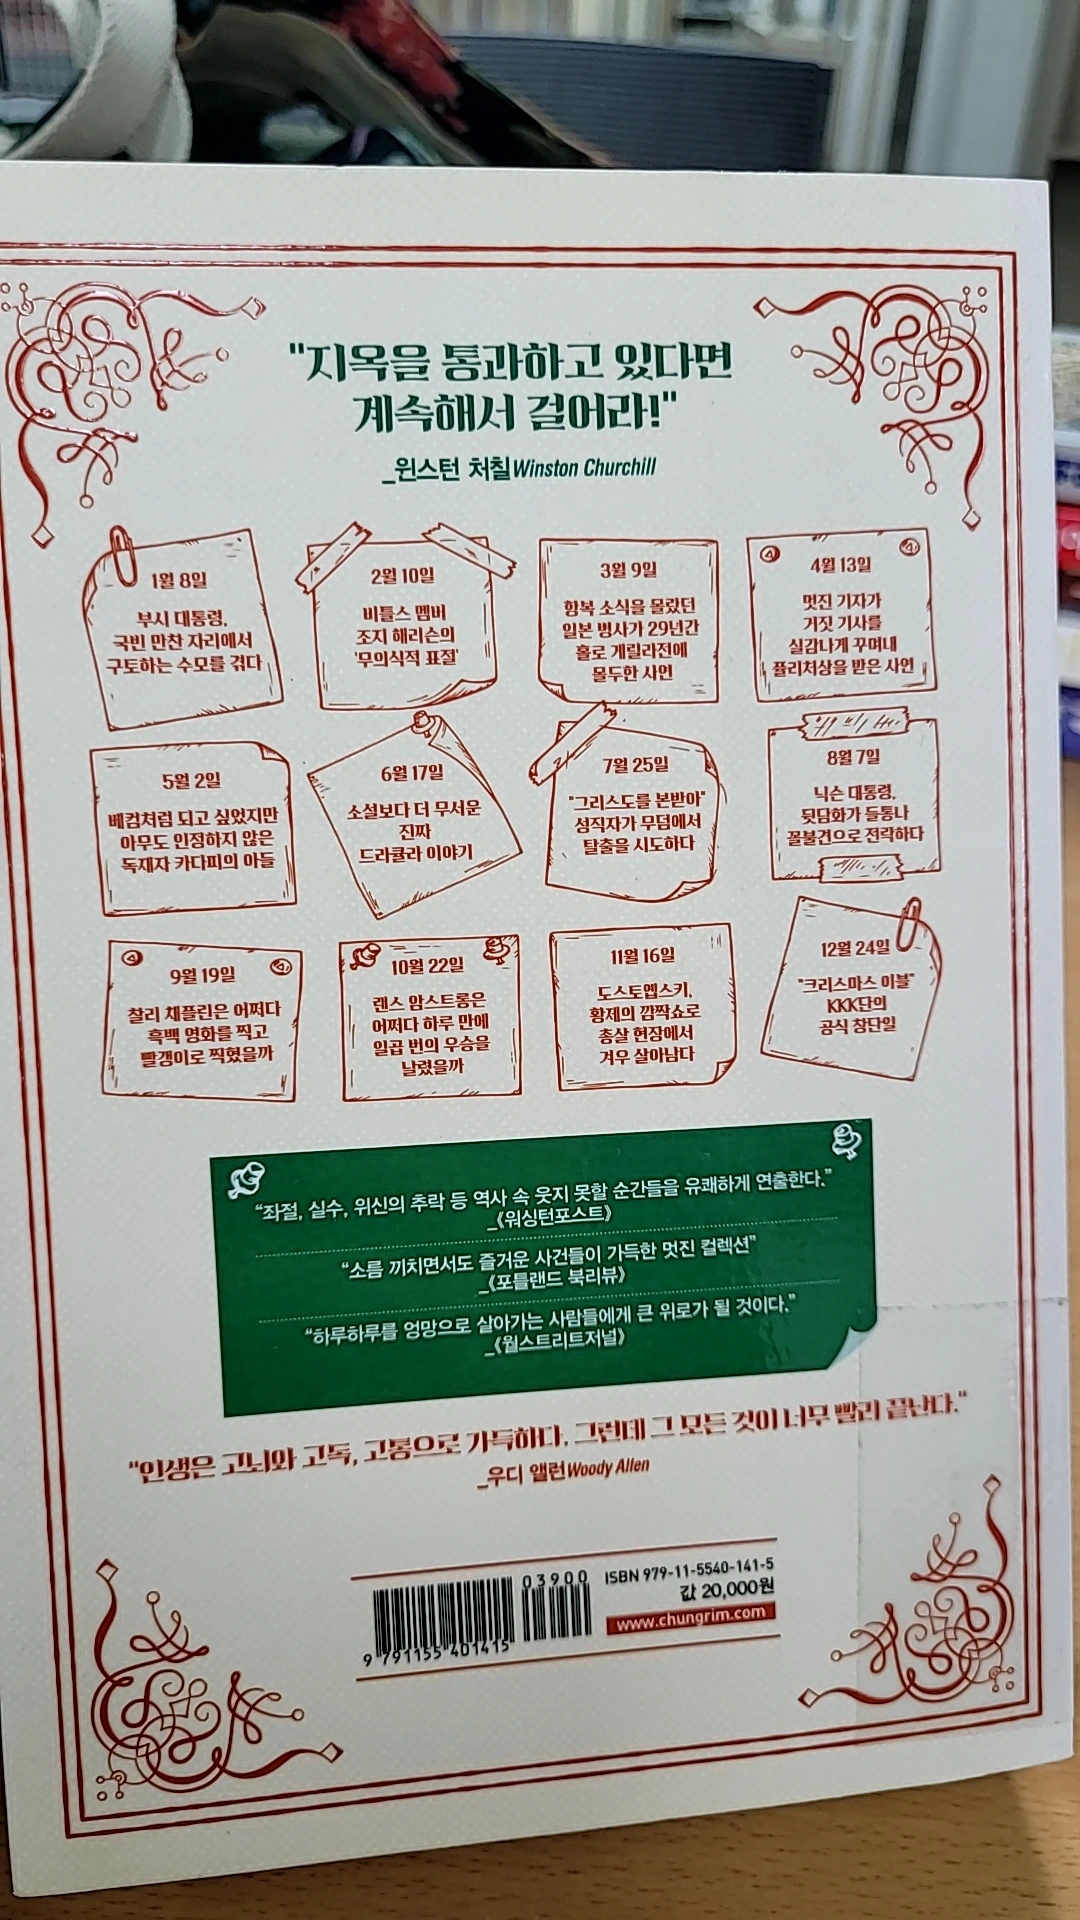 "지옥을 통과하고 있다면
계속해서 걸어라!"
_윈스턴 처칠Winston Churchill
1월 8일
부시 대통령,
국빈 만찬 자리에서
구토하는 수모를 겪다
2월 10일
비틀스 멤버
조지 해리슨의
'무의식적 표절'
3월 9일
항복 소식을 몰랐던
일본 병사가 29년간
홀로 게릴라전에
몰두한 사연
4월 13일
멋진 기자가
거짓 기사를
실감나게 꾸며내
퓰리처상을 받은 사연
5월 2일
베컴처럼 되고 싶었지만
아무도 인정하지 않은
독재자 카다피의 아들
6월 17일
소설보다 더 무서운
진짜
드라큘라 이야기
7월 25일
"그리스도를 본받아"
성직자가 무덤에서
탈출을 시도하다
8월 7일
닉슨 대통령,
뒷담화가 들통나
꼴불견으로 전락하다
9월 19일
찰리 채플린은 어쩌다
흑백 영화를 찍고
빨갱이로 찍혔을까
10월 22일
랜스 암스트롱은
어쩌다 하루 만에
일곱 번의 우승을
날렸을까
11월 16일
도스토옙스키,
황제의 깜짝쇼로
총살 현장에서
겨우 살아남다
12월 24일
"크리스마스 이블"
KKK단의
공식 창단일
"좌절, 실수, 위신의 추락 등 역사 속 웃지 못할 순간들을 유쾌하게 연출한다."
_《워싱턴포스트》
"소름 끼치면서도 즐거운 사건들이 가득한 멋진 컬렉션"
_《포틀랜드 북리뷰》
"하루하루를 엉망으로 살아가는 사람들에게 큰 위로가 될 것이다."
_《월스트리트저널》
"인생은 고뇌와 고독, 고통으로 가득하다. 그런데 그 모든 것이 너무 빨리 끝난다."
_우디 앨런Woody Allen
03900
ISBN 979-11-5540-141-5
값 20,000원
www.chungrim.com
9 791155 401415